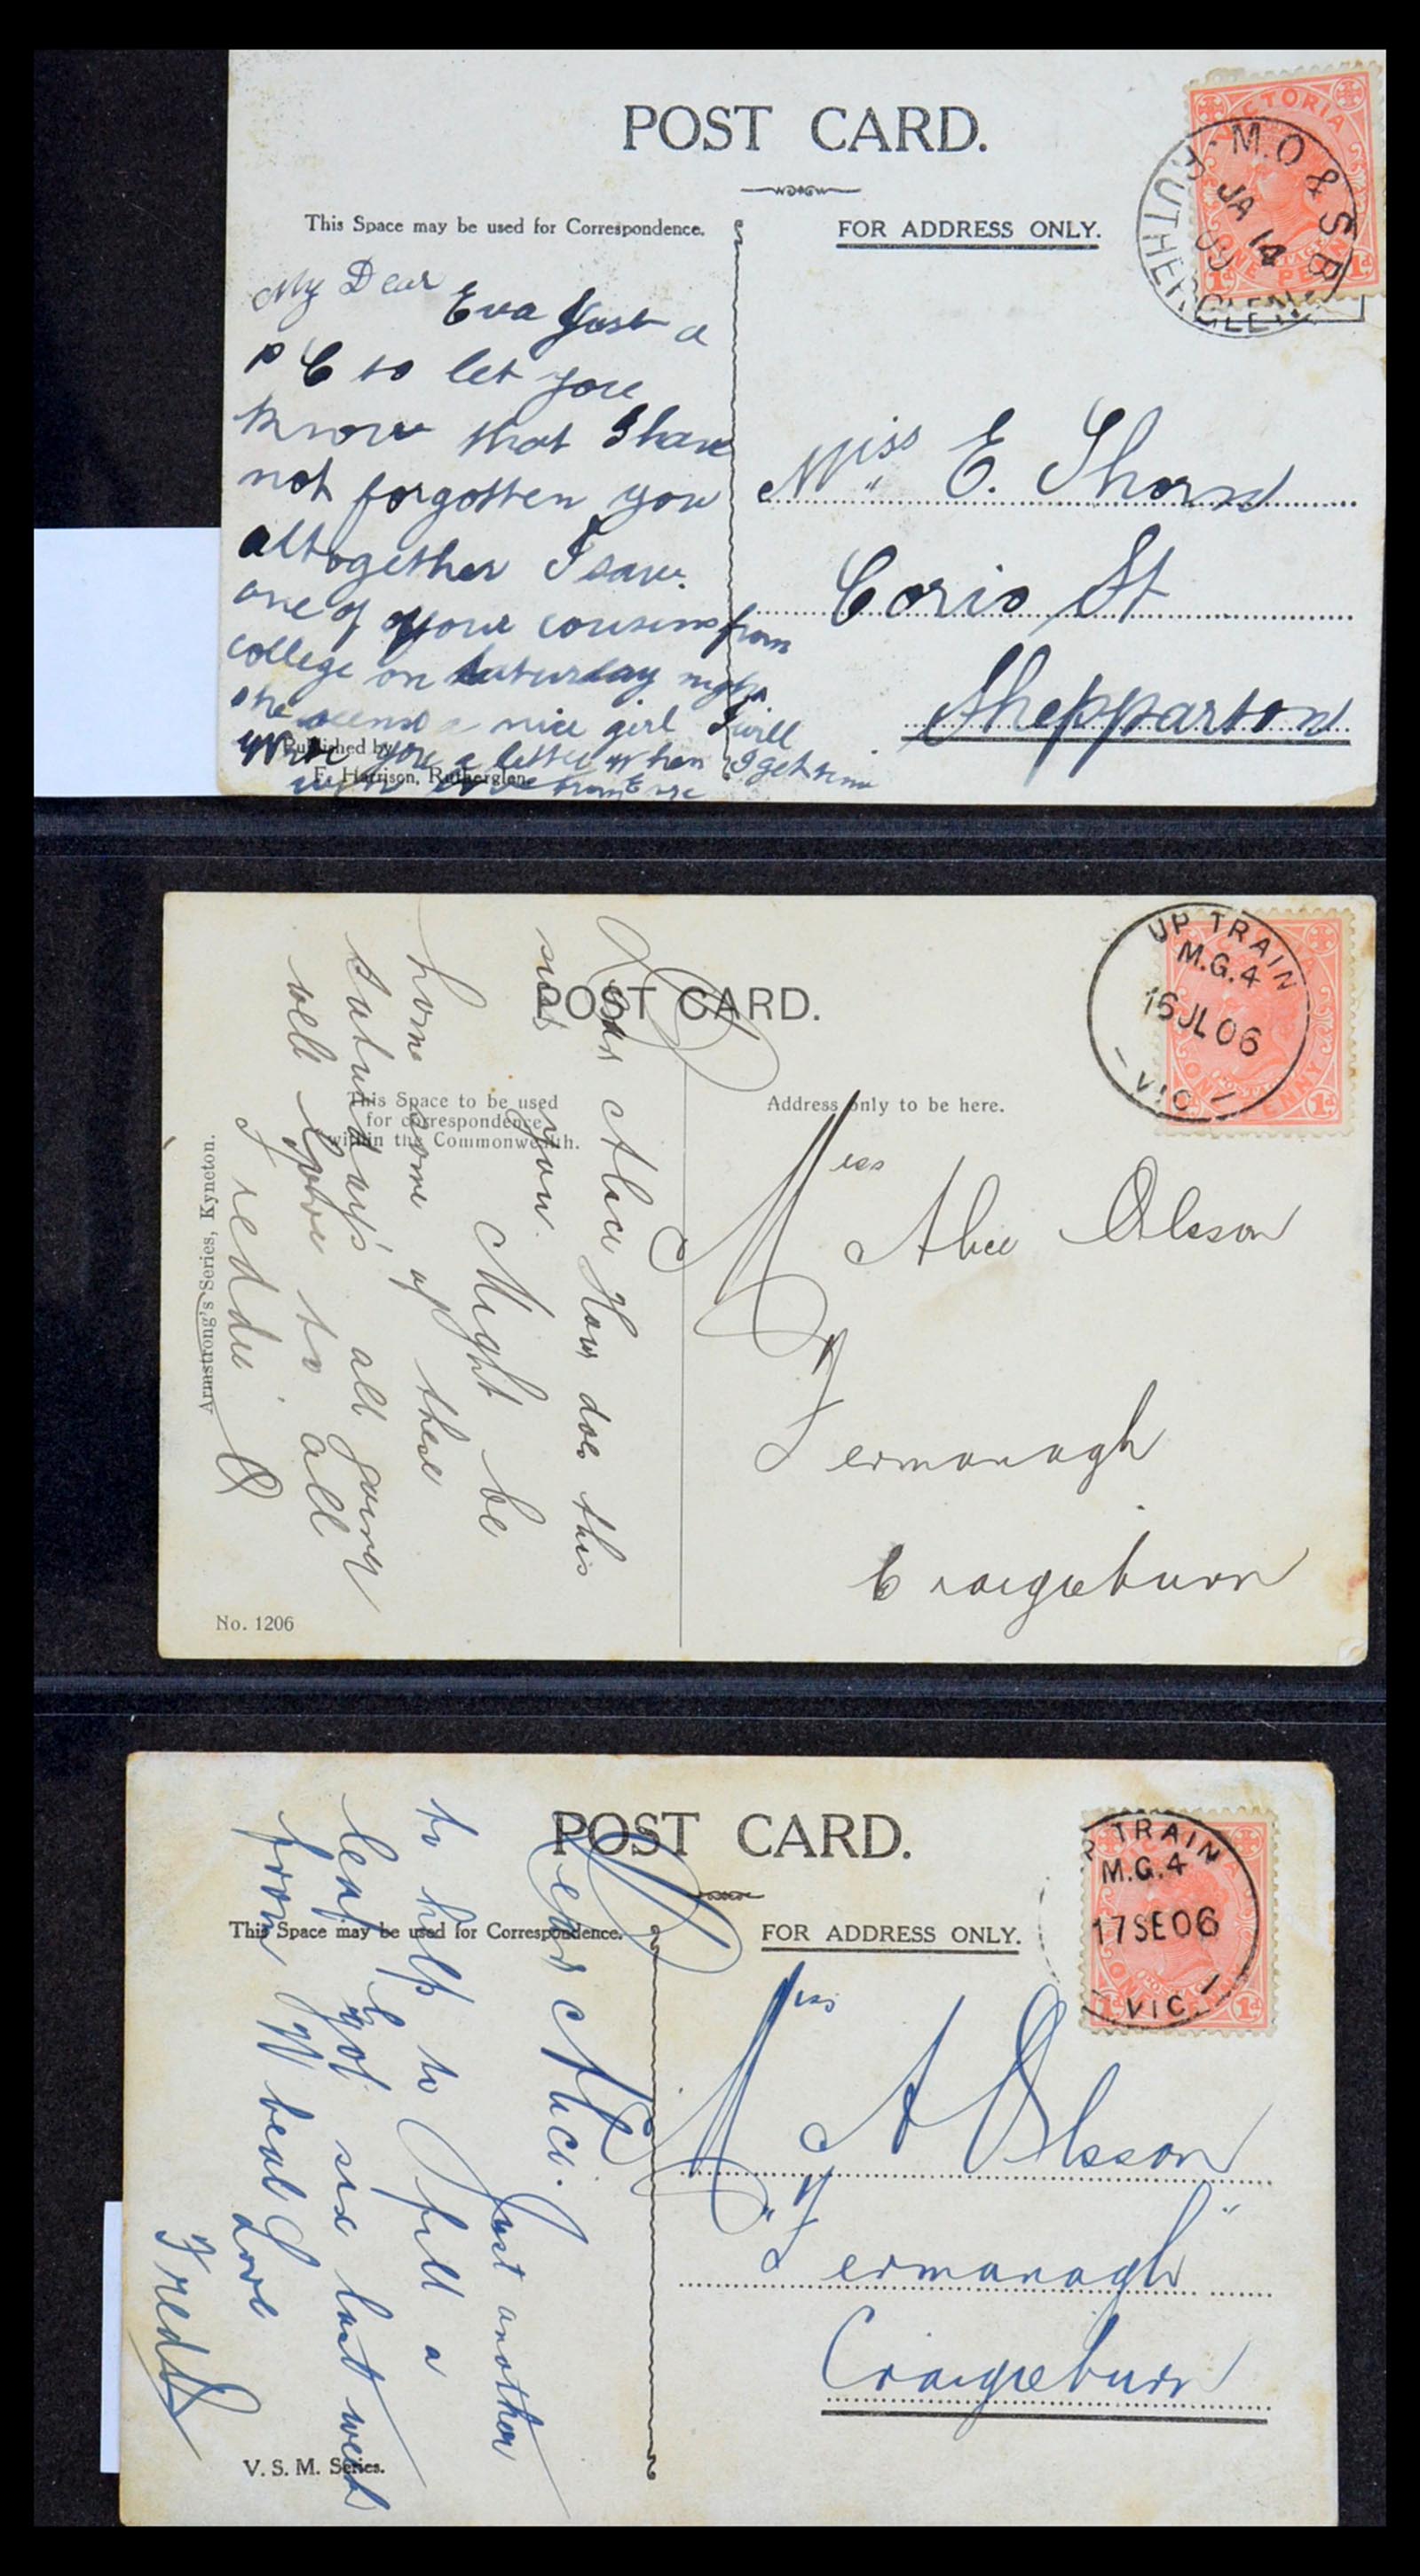 POST CARD.
This Space may be used for Correspondence.
FOR ADDRESS ONLY.
VICTORIA
ONE PENNY
1d 1d
M.O & S.B
JA 14
09
RUTHERGLEN
My Dear
Eva Just a
P C to let you
know that I have
not forgotten you
altogether I saw
one of your cousins from
college on Saturday night
she seems a nice girl I will
write you a letter when I get time
with love from
Published by
F. Harrison, Rutherglen.
Miss E. Thorn
Corio St
Shepparton
POST CARD.
This Space to be used
for correspondence
within the Commonwealth.
Address only to be here.
UP TRAIN
M.G.4
16 JL 06
VIC
ONE PENNY
1d
Dear Alice How does this
suit you. Might be
home some of these
Saturdays all going
well love to all
Freddie O
Miss Alice Olsson
Fermanagh
Craigieburn
Armstrong's Series, Kyneton.
No. 1206
POST CARD.
This Space may be used for Correspondence.
FOR ADDRESS ONLY.
UP TRAIN
M.G.4
17 SE 06
VIC
ONE PENNY
1d 1d
Dear Alice. Just another
to help to fill a
leaf got six last week
from W beal Love
Fred
Miss A Olsson
"Fermanagh"
Craigieburn
V. S. M. Series.